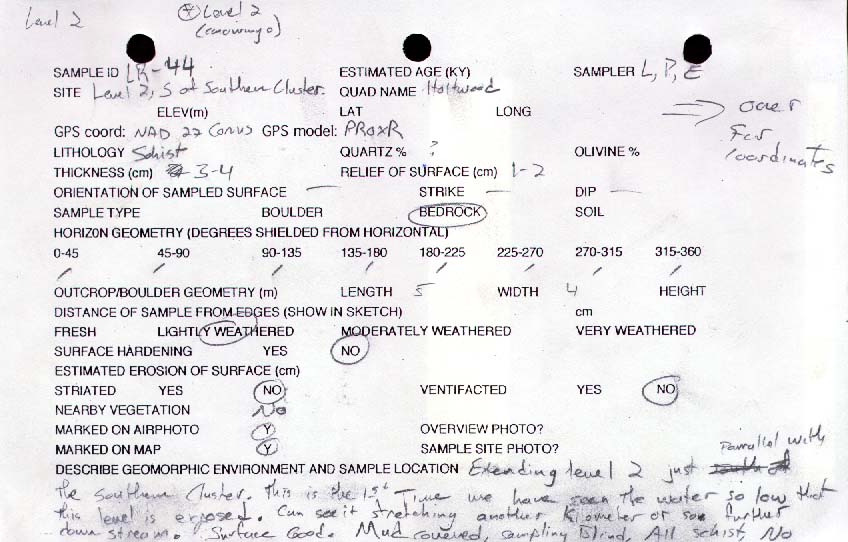 Level 2
⊕ Level 2
(conowingo)
SAMPLE ID LR-44 ESTIMATED AGE (KY) SAMPLER L, P, E
SITE Level 2, S of Southern Cluster. QUAD NAME Holtwood
ELEV(m) LAT LONG
⇒ over
For
coordinates
GPS coord: NAD 27 Conus GPS model: PROXR
LITHOLOGY Schist QUARTZ % ? OLIVINE %
THICKNESS (cm) 3-4 RELIEF OF SURFACE (cm) 1-2
ORIENTATION OF SAMPLED SURFACE — STRIKE — DIP —
SAMPLE TYPE BOULDER BEDROCK SOIL
HORIZON GEOMETRY (DEGREES SHIELDED FROM HORIZONTAL)
0-45 45-90 90-135 135-180 180-225 225-270 270-315 315-360
/ / / / / / / /
OUTCROP/BOULDER GEOMETRY (m) LENGTH 5 WIDTH 4 HEIGHT
DISTANCE OF SAMPLE FROM EDGES (SHOW IN SKETCH) cm
FRESH LIGHTLY WEATHERED MODERATELY WEATHERED VERY WEATHERED
SURFACE HARDENING YES NO
ESTIMATED EROSION OF SURFACE (cm)
STRIATED YES NO VENTIFACTED YES NO
NEARBY VEGETATION No
MARKED ON AIRPHOTO Y OVERVIEW PHOTO?
MARKED ON MAP Y SAMPLE SITE PHOTO?
DESCRIBE GEOMORPHIC ENVIRONMENT AND SAMPLE LOCATION Extending level 2 just Parrallel with
the Southern Cluster. This is the 1st Time we have seen the water so low that
this level is exposed. Can see it stretching another Kilometer or so further
down stream. Surface Good. Mud covered, sampling Blind, All schist, No